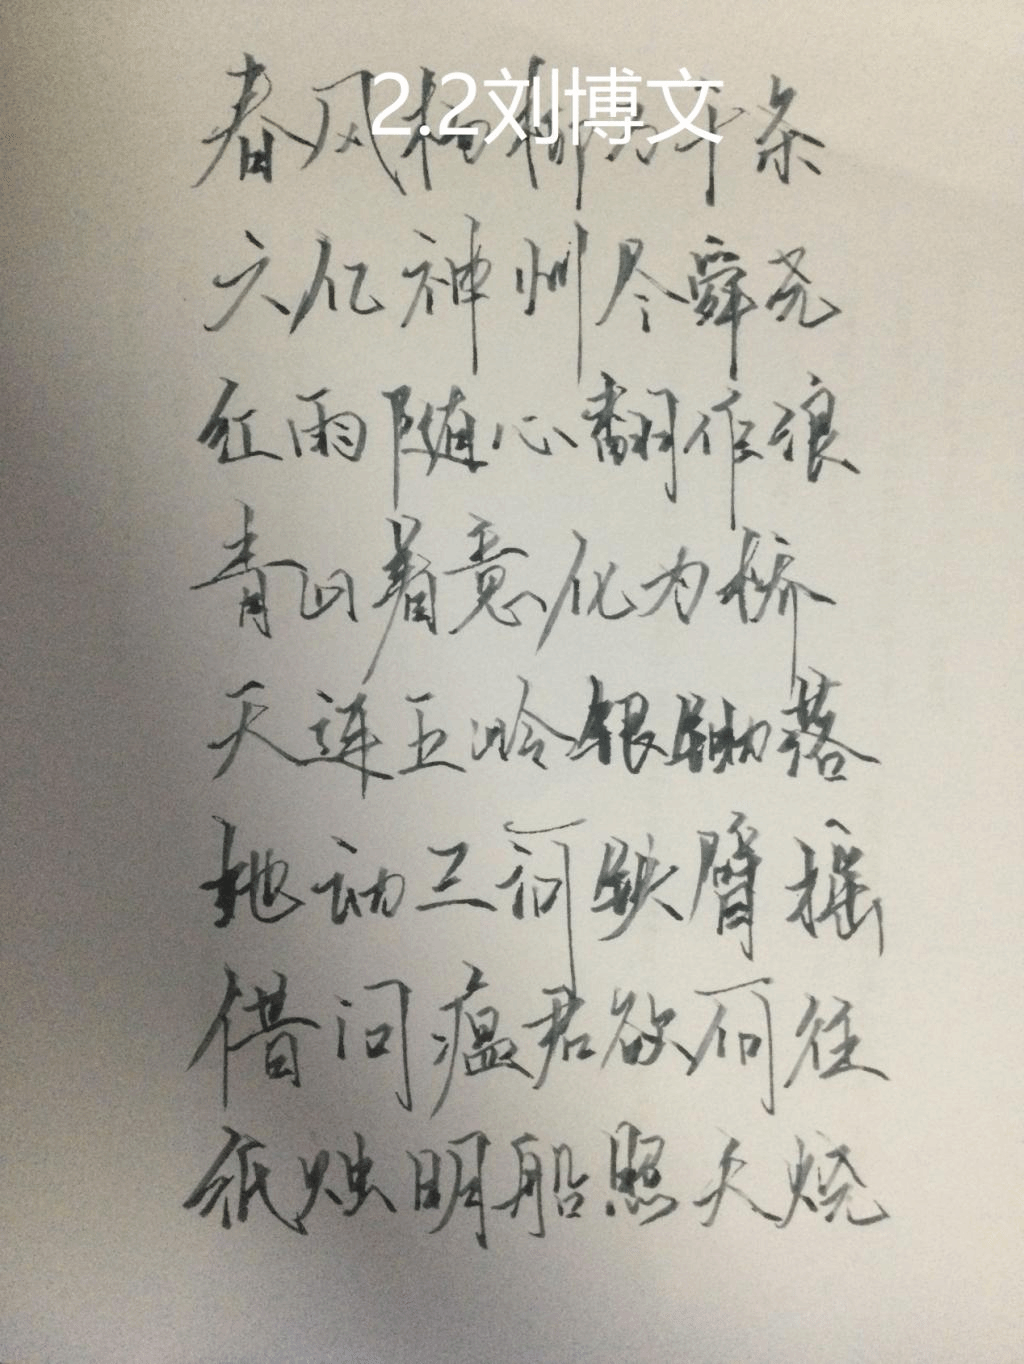 2.2刘博文
春风杨柳万千条
六亿神州尽舜尧
红雨随心翻作浪
青山着意化为桥
天连五岭银锄落
地动三河铁臂摇
借问瘟君欲何往
纸烛明船照天烧